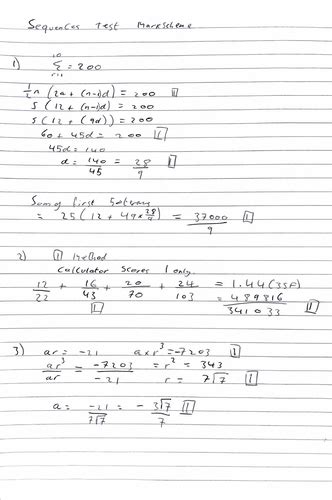 Sequences Test Markscheme
1) 10
Σ = 200
r=1
½n (2a + (n-1)d) = 200 [1]
5 (12 + (n-1)d) = 200
5 (12 + (9d)) = 200
60 + 45d = 200 [1]
45d = 140
d = 140/45 = 28/9 [1]
Sum of first 50 terms
= 25 (12 + 49 x 28/9) = 37000/9 [1]
2) [1] Method
Calculator scores 1 only.
12/22 + 16/43 + 20/70 + 24/103 = 1.44 (3SF)
[1] = 489816/341033 [1]
3) ar = -21 axr³ = -7203 [1]
ar³/ar = -7203/-21 = r² = 343
r = 7√7 [1]
a = -21/7√7 = -3√7/7 [1]